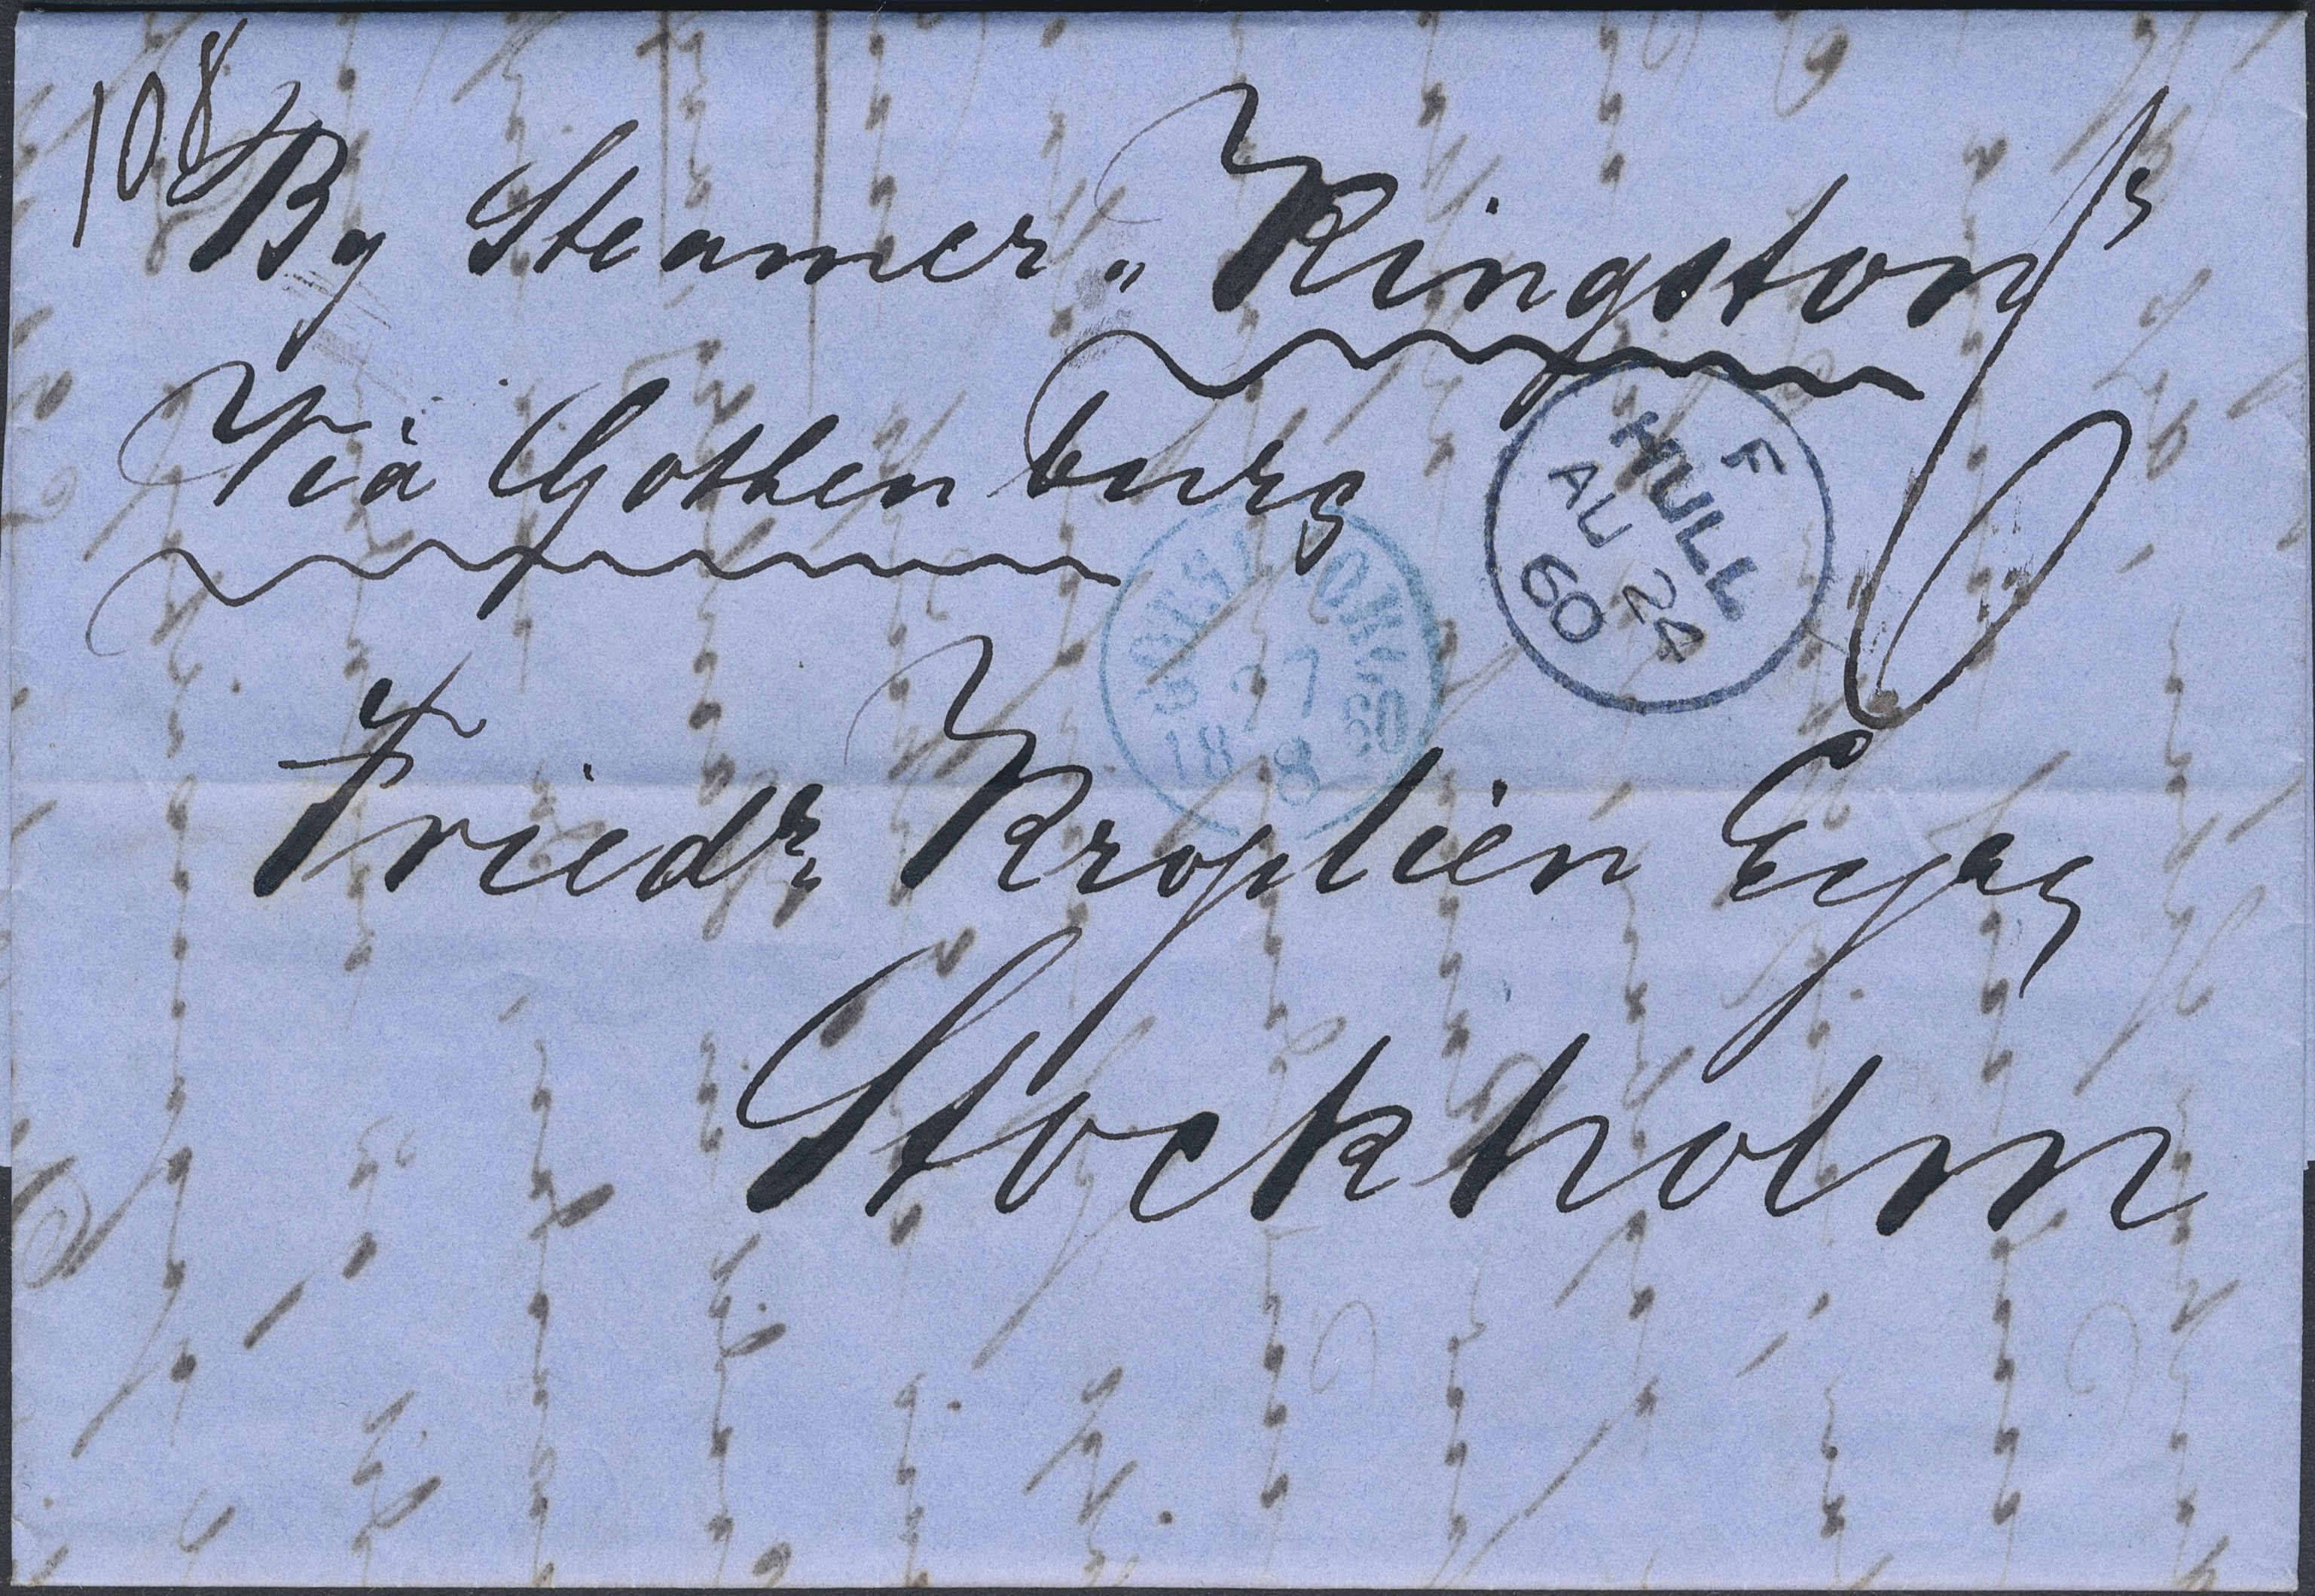 108
By Steamer „Kingston"
Via Gothenburg
F
HULL
AU 24
60
27
18 8 60
Friedr. Kroplien Esqr
Stockholm